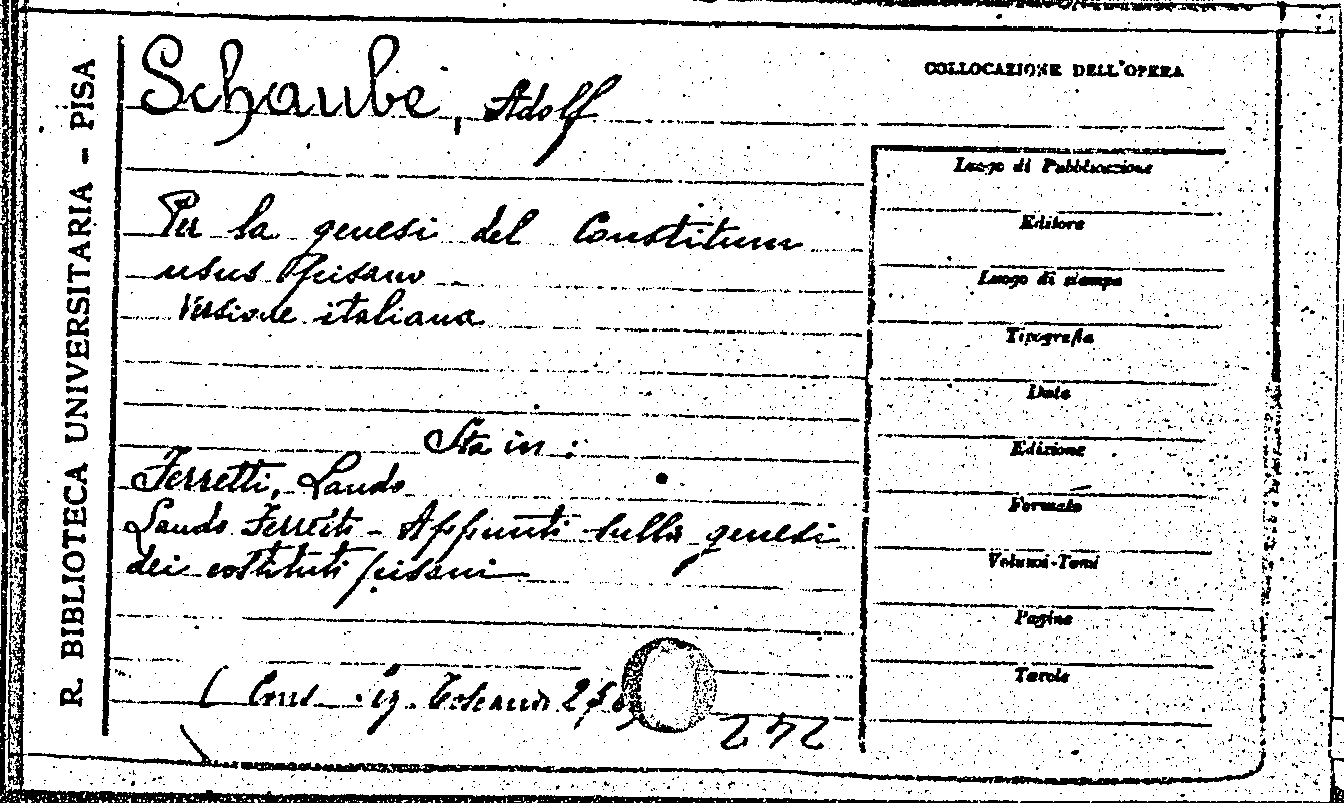 R. BIBLIOTECA UNIVERSITARIA - PISA
Schaube, Adolf
Per la genesi del Constitum
usus pisano
Versione italiana
Sta in :
Ferretti, Lando
Lando Ferretti - Appunti sulla genesi
dei costituti pisani
( Cons.
242
COLLOCAZIONE DELL'OPERA
Luogo di Pubblicazione
Editore
Luogo di stampa
Tipografia
Data
Edizione
Formato
Volumi-Tomi
Pagine
Tavole